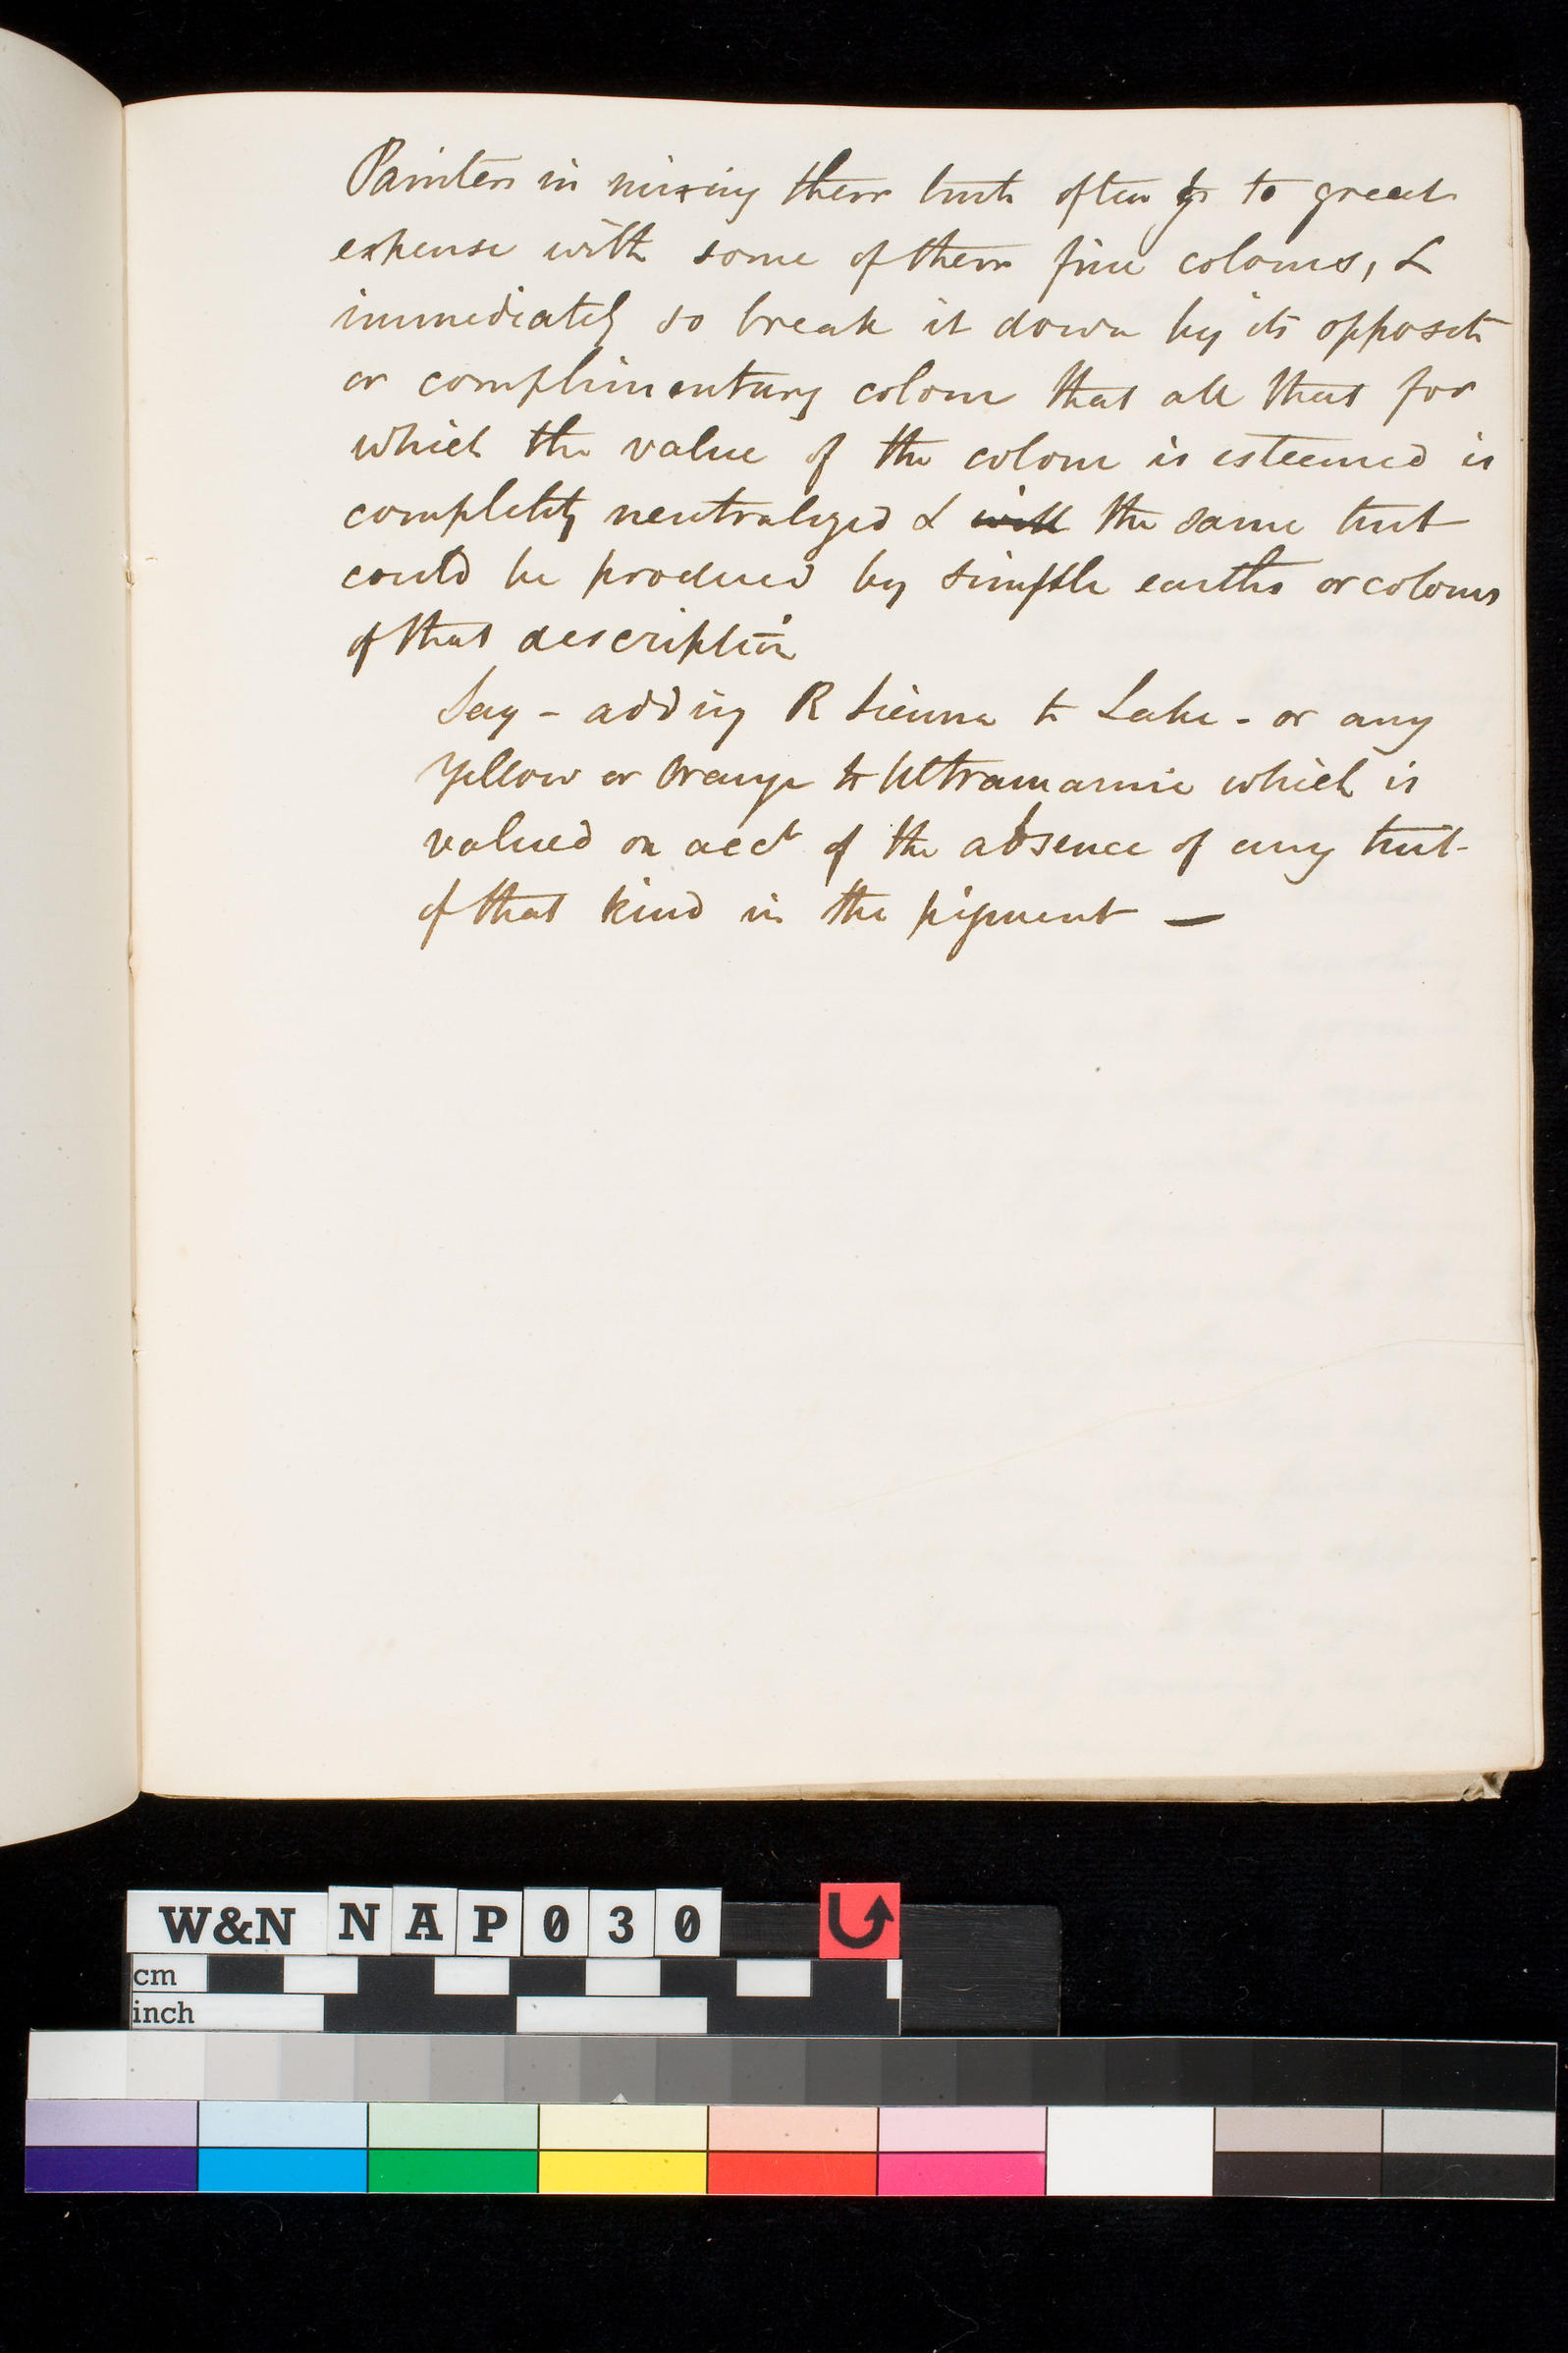 Painters in mixing their tints often go to great
expense with some of their fine colours, &
immediately so break it down by its opposite
or complimentary colour that all that for
which the value of the colour is esteemed is
completely neutralized & will the same tint
could be produced by simple earths or colours
of that description
Say - adding R Sienna to Lake - or any
Yellow or Orange to Ultramarine which is
valued on acct of the absence of any tint
of that kind in the pigment —
W&N NAP030
cm
inch